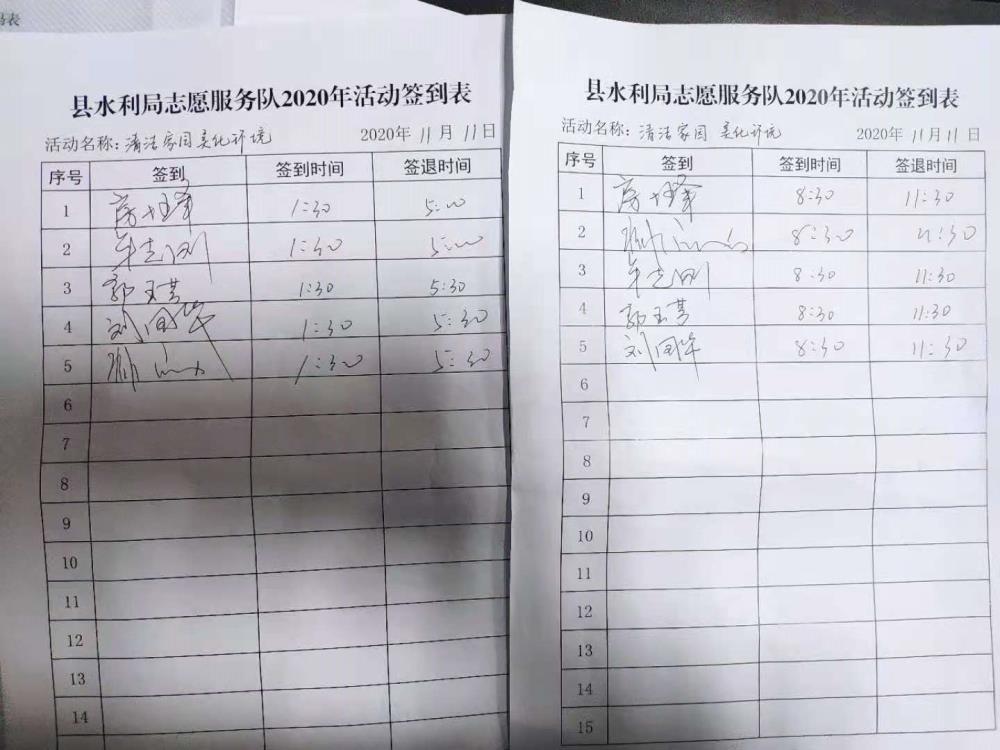 县水利局志愿服务队2020年活动签到表
活动名称：清洁家园 美化环境 2020年 11月 11日
序号 签到 签到时间 签退时间
1 1:30 5:00
2 牟志刚 1:30 5:00
3 郭玉芸 1:30 5:30
4 刘国华 1:30 5:30
5 1:30 5:30
6
7
8
9
10
11
12
13
14
县水利局志愿服务队2020年活动签到表
活动名称：清洁家园 美化环境 2020年 11月 11日
序号 签到 签到时间 签退时间
1 8:30 11:30
2 8:30 11:30
3 牟志刚 8:30 11:30
4 郭玉芸 8:30 11:30
5 刘国华 8:30 11:30
6
7
8
9
10
11
12
13
14
15